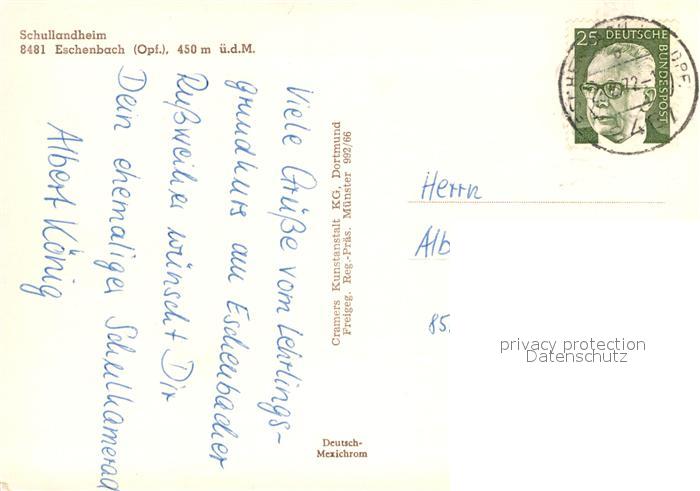 Schullandheim
8481 Eschenbach (Opf.), 450 m ü.d.M.
Viele Grüße vom Lehrlings-
grundkurs am Eschenbacher
Rußweiher wünscht Dir
Dein ehemaliger Schulkamerad
Albert König
Cramers Kunstanstalt KG, Dortmund
Freigeg. Reg.-Präs. Münster 992/66
Deutsch-
Mexichrom
25 DEUTSCHE
BUNDESPOST
OPF.
72-1
Herrn
Alb
85
privacy protection
Datenschutz